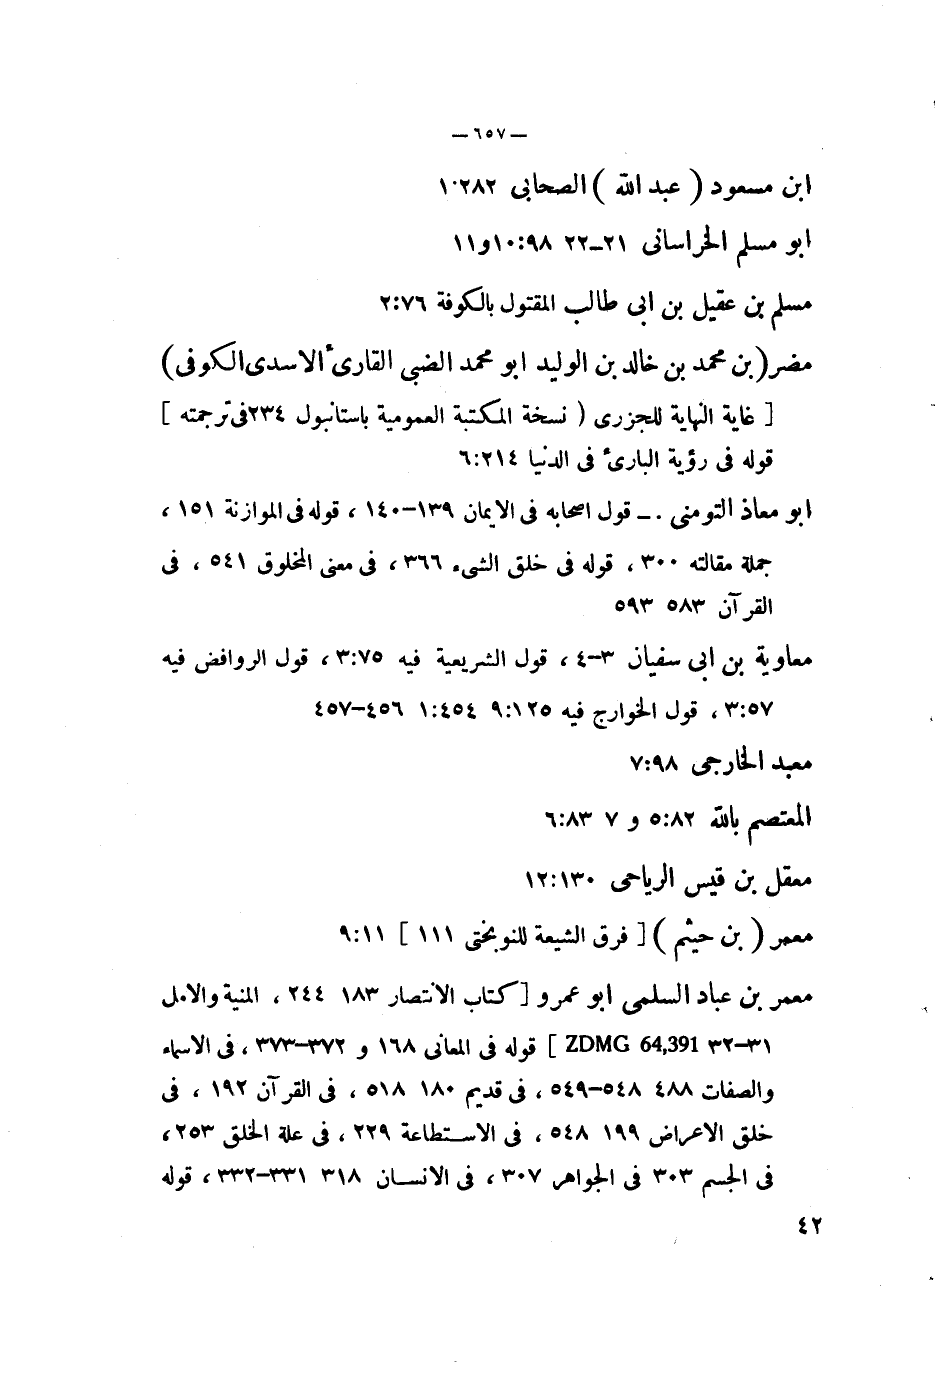 — ٦٥٧ —
ابن مسعود ( عبد الله ) الصحابى ١٠٢٨٢
ابو مسلم الخراسانى ٢١–٢٢ ٩٨:١٠و١١
مسلم بن عقيل بن ابى طالب المقتول بالكوفة ٧٦:٢
مضر(بن محمد بن خالد بن الوليد ابو محمد الضبى القارئ الاسدى الكوفى)
[ غاية النهاية للجزرى ( نسخة المكتبة العمومية باستانبول ٢٣٤فى ترجمته ]
قوله فى رؤية البارئ فى الدنيا ٢١٤:٦
ابو معاذ التومنى .ـ قول اصحابه فى الايمان ١٣٩–١٤٠ ، قوله فى الموازنة ١٥١ ،
جملة مقالته ٣٠٠ ، قوله فى خلق الشىء ٣٦٦ ، فى معنى المخلوق ٥٤١ ، فى
القرآن ٥٨٣ ٥٩٣
معاوية بن ابى سفيان ٣–٤ ، قول الشريعية فيه ٧٥:٣ ، قول الروافض فيه
٥٧:٣ ، قول الخوارج فيه ١٢٥:٩ ٤٥٤:١ ٤٥٦–٤٥٧
معبد الخارجى ٩٨:٧
المعتصم بالله ٨٢:٥ و ٧ ٨٣:٦
معقل بن قيس الرياحى ١٣٠:١٢
معمر ( بن حيثم ) [ فرق الشيعة للنوبختى ١١١ ] ١١:٩
معمر بن عباد السلمى ابو عمرو [كتاب الانتصار ١٨٣ ٢٤٤ ، المنية والامل
٣١–٣٢ ZDMG 64,391 ] قوله فى المعانى ١٦٨ و ٣٧٢–٣٧٣ ، فى الاسماء
والصفات ٤٨٨ ٥٤٨–٥٤٩ ، فى قديم ١٨٠ ٥١٨ ، فى القرآن ١٩٢ ، فى
خلق الاعراض ١٩٩ ٥٤٨ ، فى الاستطاعة ٢٢٩ ، فى علة الخلق ٢٥٣ ،
فى الجسم ٣٠٣ فى الجواهر ٣٠٧ ، فى الانسان ٣١٨ ٣٣١–٣٣٢ ، قوله
٤٢